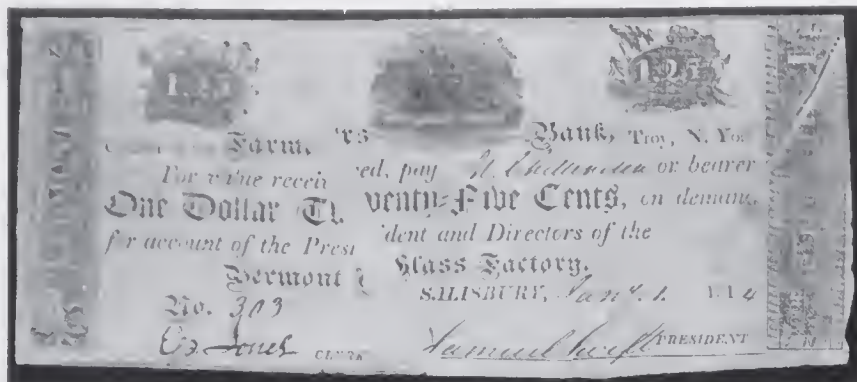 1.25 1.25
Farmers Bank, Troy, N. Yo
For value received, pay or bearer
One Dollar Twenty-Five Cents, on demand,
for account of the President and Directors of the
Vermont Glass Factory.
SALISBURY, Jany. 1. 1814
No. 303
Ep Jones CLERK Samuel Swift PRESIDENT